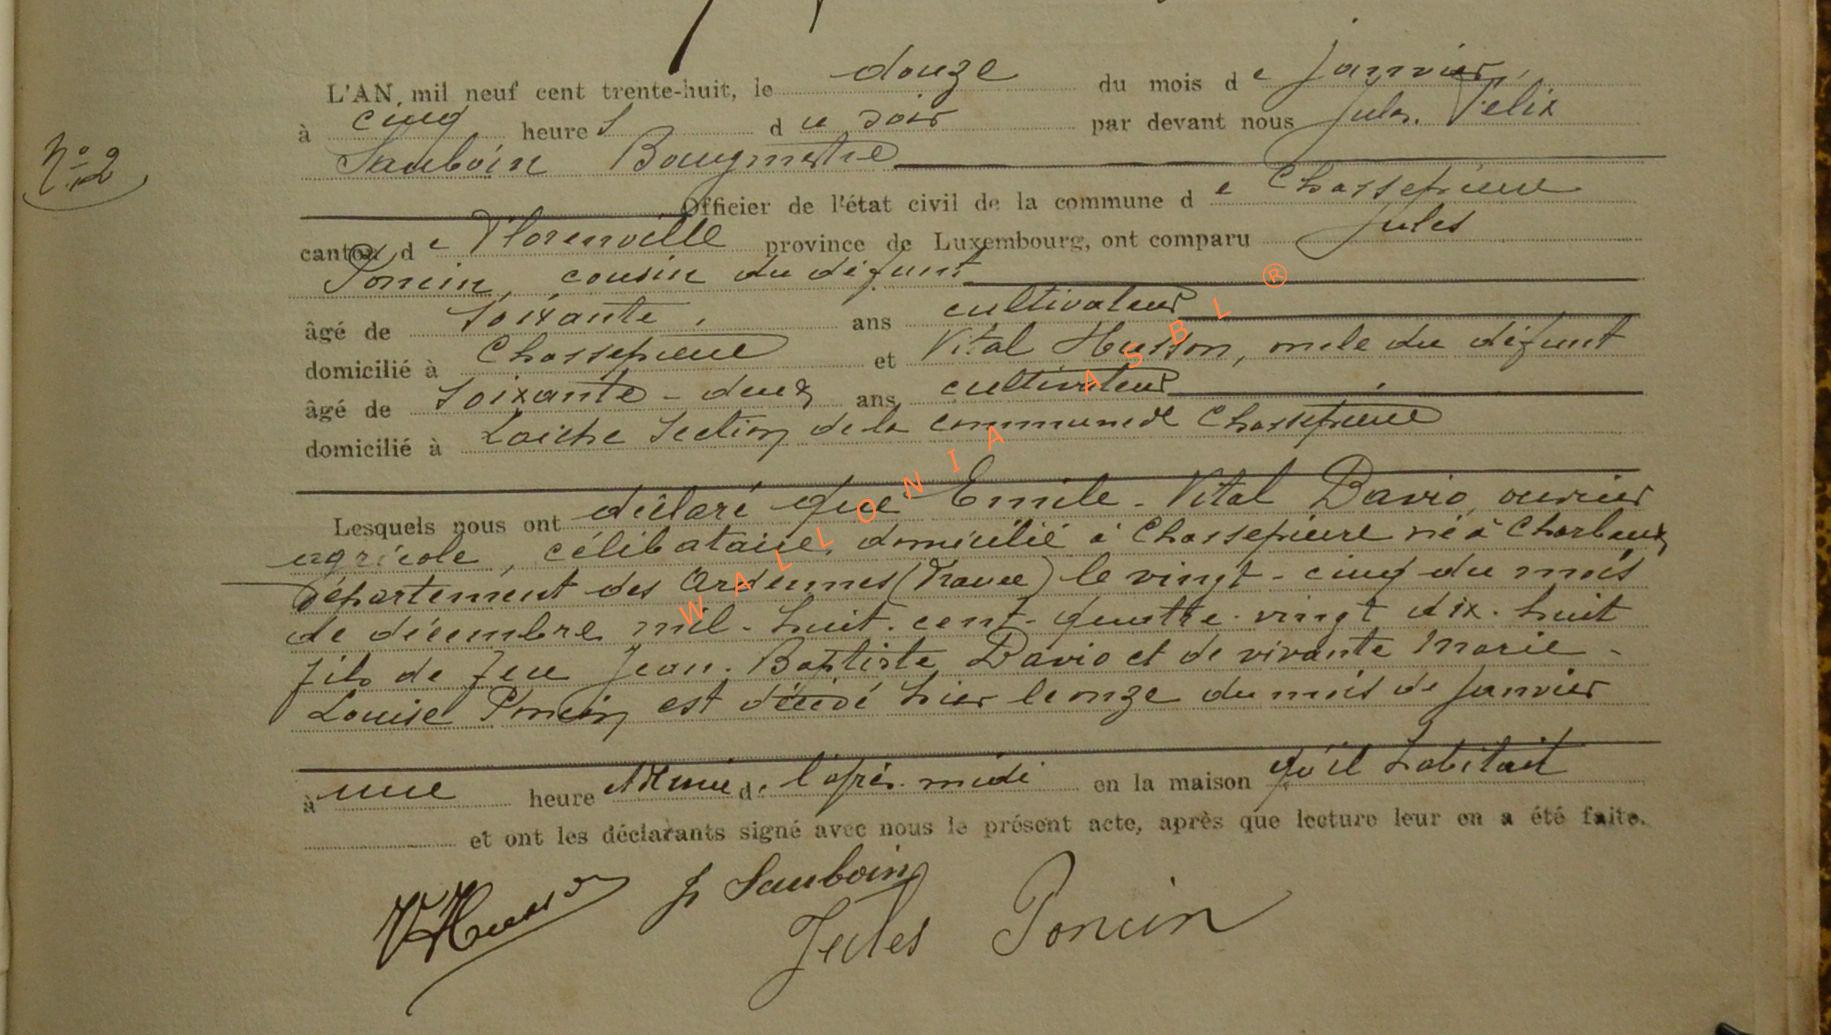 L'AN mil neuf cent trente-huit, le douze du mois de janvier,
à cinq heures du soir par devant nous Jules. Félix
Sauboin Bourgmestre
N° 2
Officier de l'état civil de la commune de Chassepierre
canton de Florenville province de Luxembourg, ont comparu Jules
Poncin, cousin du défunt
âgé de soixante, ans cultivateur
domicilié à Chassepierre et Vital Husson, oncle du défunt
âgé de soixante-deux ans cultivateur
domicilié à Laiche Section de la commune de Chassepierre
Lesquels nous ont déclaré que Emile-Vital Davio, ouvrier
agricole, célibataire, domicilié à Chassepierre né à Charbeaux,
département des Ardennes (France) le vingt-cinq du mois
de décembre mil-huit-cent-quatre-vingt dix-huit
fils de feu Jean-Baptiste Davio et de vivante Marie-
Louise Poncin est décédé hier le onze du mois de janvier
à une heure et demie de l'après-midi en la maison qu'il habitait
et ont les déclarants signé avec nous le présent acte, après que lecture leur en a été faite.
VHusson J Sauboin
Jules Poncin
WALLONIA ASBL ®